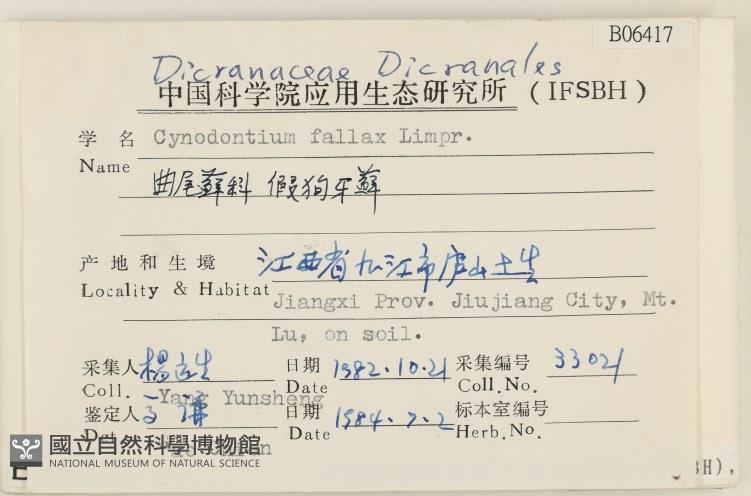 B06417
Dicranaceae Dicranales
中国科学院应用生态研究所 (IFSBH)
学名 Cynodontium fallax Limpr.
Name
曲尾藓科 假狗牙藓
产地和生境 江西省九江市庐山土生
Locality & Habitat Jiangxi Prov. Jiujiang City, Mt.
Lu, on soil.
采集人 日期 1982.10.21 采集编号 33021
Coll. Yang Yunsheng Date Coll.No.
鉴定人 高谦 日期 1984.7.2 标本室编号
Date Herb.No.
國立自然科學博物館
NATIONAL MUSEUM OF NATURAL SCIENCE
BH),